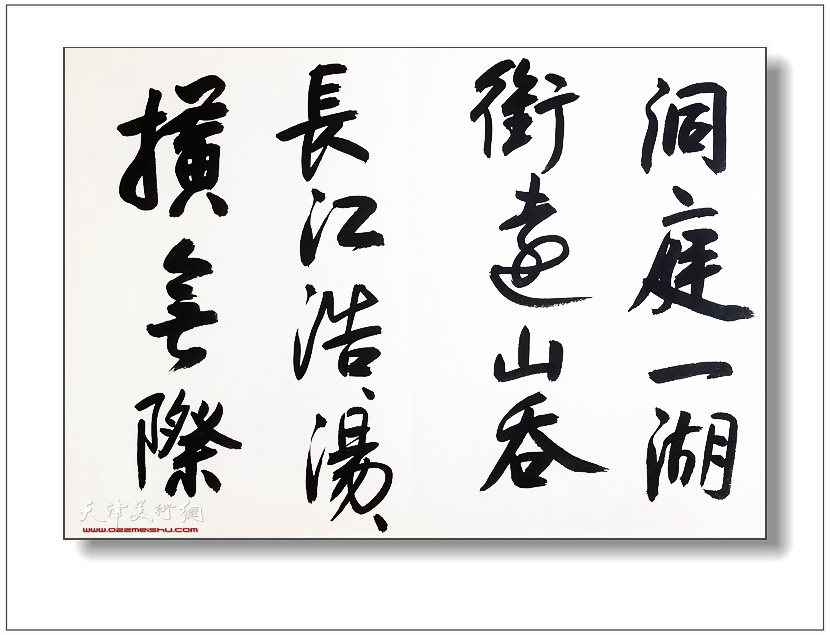 洞庭一湖
銜遠山吞
長江浩、湯、
橫無際
天津美術網
www.022meishu.com